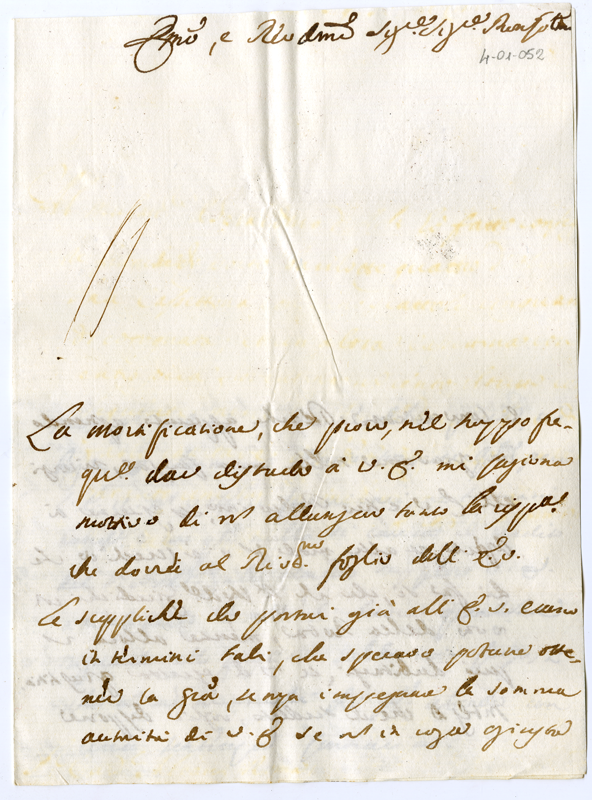 Emo, e Revdmo Sigre Sigre
4-01-052
La mortificazione, che provo, nel troppo fre-
que dar disturbo à V. E. mi cagiona
motivo di nõ allungar tanto la
che dovrei al foglio dell' E. V.
Le suppliche che porsi già all' E. V. erano
in termini tali, che speravo poterne otte-
ner la gra, senza impegnare la somma
autorità di V. E. se nõ in cosa